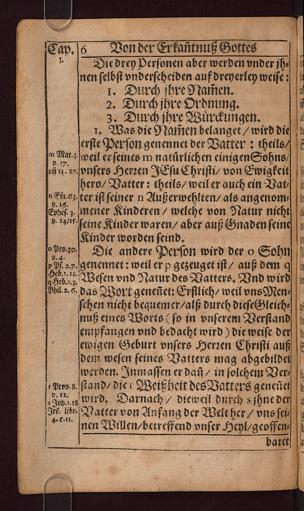 Cap. 1.
6 Von der Erkañtnuß Gottes
Die drey Personen aber werden vnder jh-
nen selbst vnderscheiden auf dreyerley weise:
1. Durch jhre Nam̃en.
2. Durch jhre Ordnung.
3. Durch jhre Würckungen.
1. Was die Nam̃en belanget / wird die
erste Person genennet der Vatter: theils/
weil er seines m natürlichen einigen Sohns/
vnsers Herren JEsu Christi / von Ewigkeit
hero/ Vatter: theils/ weil er auch ein Vat-
ter ist seiner n Außerwehlten/ als angenom-
mener Kinderen / welche von Natur nicht
seine Kinder waren/ aber auß Gnaden seine
Kinder worden seind.
Die andere Person wird der o Sohn
genennet: weil er p gezeuget ist / auß dem q
Wesen vnd Natur des Vatters. Vnd wird
das Wort geneñet: Erstlich/ weil vns Men-
schen nicht bequemer/ alß durch diese Gleich-
nuß eines Worts (so in vnserem Verstand
empfangen vnd bedacht wird) die weise der
ewigen Geburt vnsers Herren Christi auß
dem wesen seines Vatters mag abgebildet
werden. Inmassen er dañ/ in solchem Ver-
stand/ die r Weißheit des Vatters geneñet
wird. Darnach/ dieweil durch s jhne der
Vatter von Anfang der Welt her / vns sei-
nen Willen/ betreffend vnser Heyl/ geoffen-
baret
m Mat. 3
v. 17.
n Esa. 63.
v. 16.
Ephes. 3.
v. 14/15.
o Pro. 30.
v. 4.
p Ps. 2. 7.
Heb. 1. 5.
q Heb. 1. 3.
Phil. 2. 6.
r Prov. 8.
v. 12.
s Joh. 1. 18